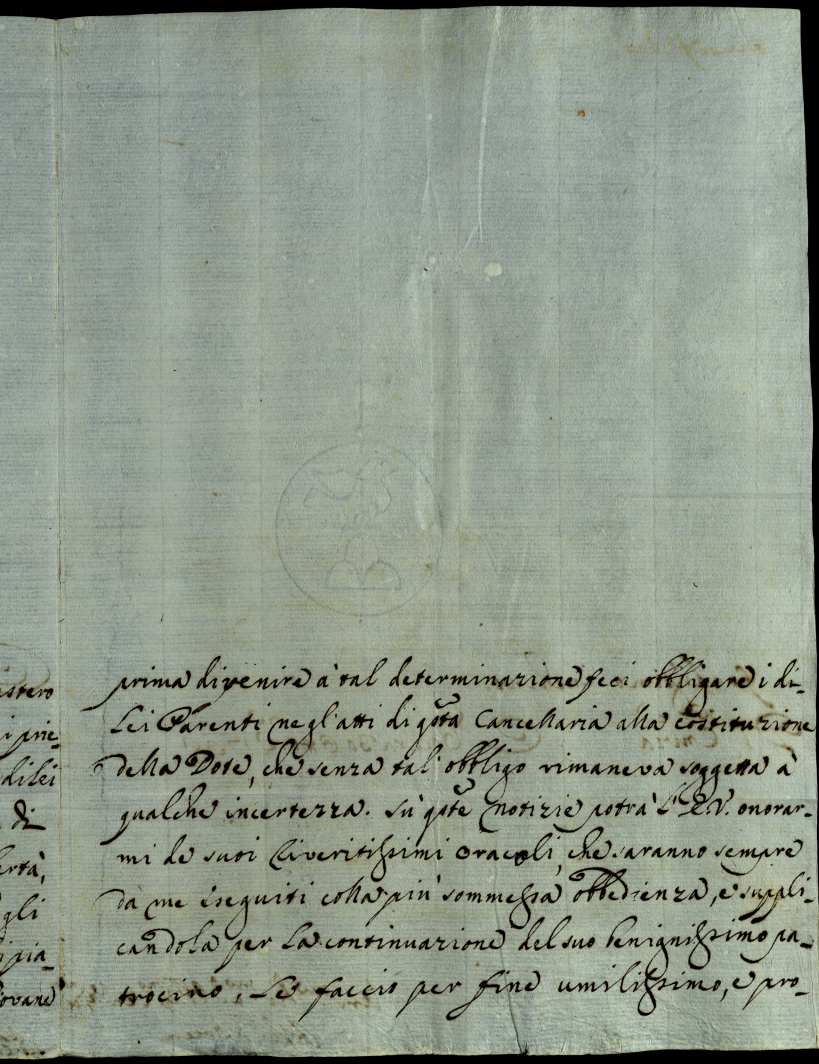 astero
i prie=
di lei
di
ertà,
gli
i pia=
iovane
prima di venire à tal determinazione feci obbligare i di=
Lei Parenti negl'atti di qsta Cancellaria alla costituzione
della Dote, che senza tal' obbligo rimaneva soggetta à
qualche incertezza. Sù qste notizie potrà l'E.V. onorar=
mi de suoi riveritissimi oracoli, che saranno sempre
da me eseguiti colla più sommessa obbedienza, e suppli=
candola per la continuazione del suo benignissimo pa=
trocinio, Le faccio per fine umilissimo, e pro=